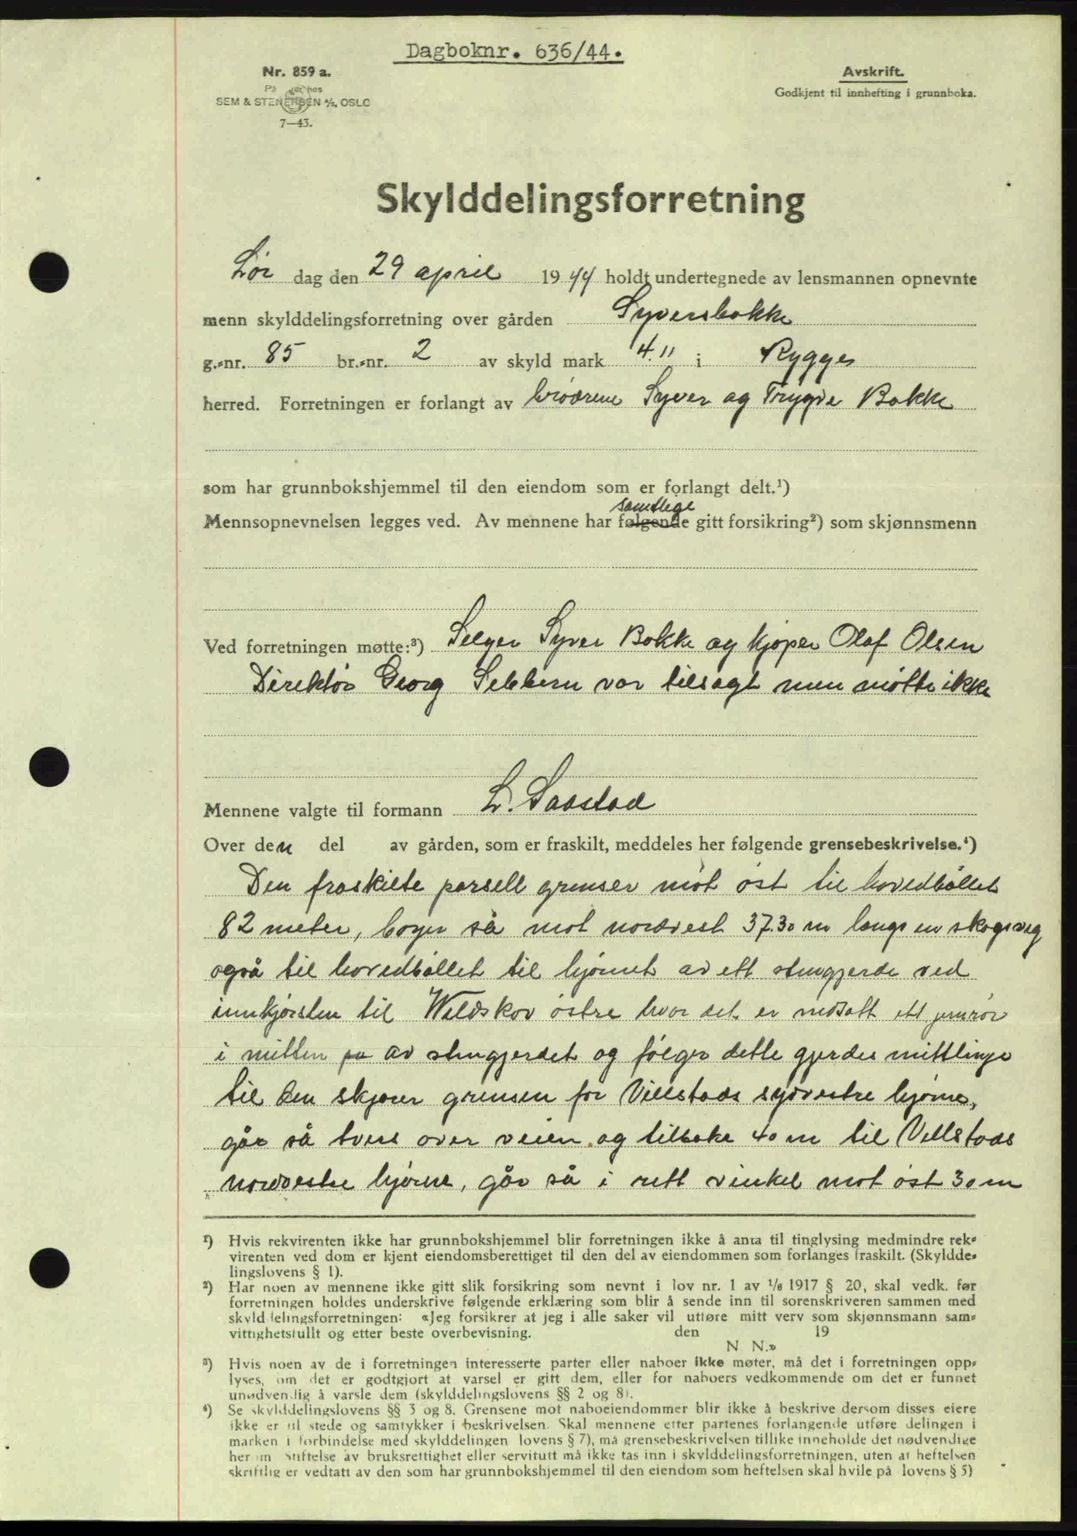 Dagboknr. 636/44.
Nr. 859 a.
SEM & STENERSEN A/S, OSLO
7—43.
Avskrift.
Godkjent til innhefting i grunnboka.
Skylddelingsforretning
Lør dag den 29 april 1944 holdt undertegnede av lensmannen opnevnte
menn skylddelingsforretning over gården Syversbakke
g.-nr. 85 br.-nr. 2 av skyld mark 4.11 i Rygge
herred. Forretningen er forlangt av brødrene Syver og Trygve Bakke
som har grunnbokshjemmel til den eiendom som er forlangt delt.¹)
samtlege
Mennsopnevnelsen legges ved. Av mennene har følgende gitt forsikring²) som skjønnsmenn
Ved forretningen møtte:³) Selger Syver Bakke og kjøper Olaf Olsen
Direktør Georg Sebbern var tilsagt men møtte ikke
Mennene valgte til formann L. Saastad
Over den del av gården, som er fraskilt, meddeles her følgende grensebeskrivelse.⁴)
Den fraskilte parsell grenser mot øst til hovedbøllet
82 meter, bøyer så mot nordvest 37.30 m langs en skogsveg
også til hovedbøllet til hjørnet av ett stengjerde ved
innkjørslen til Weldskov østre hvor det er nedsatt ett jernrør
i mitten på av stengjerdet og følger dette gjerdes mittlinje
til den skjærer grensen for Villstads sydvestre hjørne,
går så tvers over veien og tilbake 40 m til Vellstads
nordvestre hjørne, går så i rett vinkel mot øst 30 m
¹) Hvis rekvirenten ikke har grunnbokshjemmel blir forretningen ikke å anta til tinglysing medmindre rek-
virenten ved dom er kjent eiendomsberettiget til den del av eiendommen som forlanges fraskilt. (Skyldde-
lingslovens § 1).
²) Har noen av mennene ikke gitt slik forsikring som nevnt i lov nr. 1 av 1/6 1917 § 20, skal vedk. før
forretningen holdes underskrive følgende erklæring som blir å sende inn til sorenskriveren sammen med
skylddelingsforretningen: «Jeg forsikrer at jeg i alle saker vil utføre mitt verv som skjønnsmann sam-
vittighetsfullt og etter beste overbevisning. den 19
N. N.»
³) Hvis noen av de i forretningen interesserte parter eller naboer ikke møter, må det i forretningen opp-
lyses, om det er godtgjort at varsel er gitt dem, eller for naboers vedkommende om det er funnet
unødvendig å varsle dem (skylddelingslovens §§ 2 og 8).
⁴) Se skylddelingslovens §§ 3 og 8. Grensene mot naboeiendommer blir ikke å beskrive dersom disses eiere
ikke er til stede og samtykker i beskrivelsen. Skal mennene etter partenes forlangende utføre delingen i
marken i forbindelse med skylddelingen lovens § 7), må grensebeskrivelsen tillike inneholde det nødvendige
her om. Stiftelse av bruksrettighet eller servitutt må ikke tas inn i skylddelingsforretningen, uten at heftelsen
skriftlig er vedtatt av den som har grunnbokshjemmel til den eiendom som heftelsen skal hvile på lovens § 5)